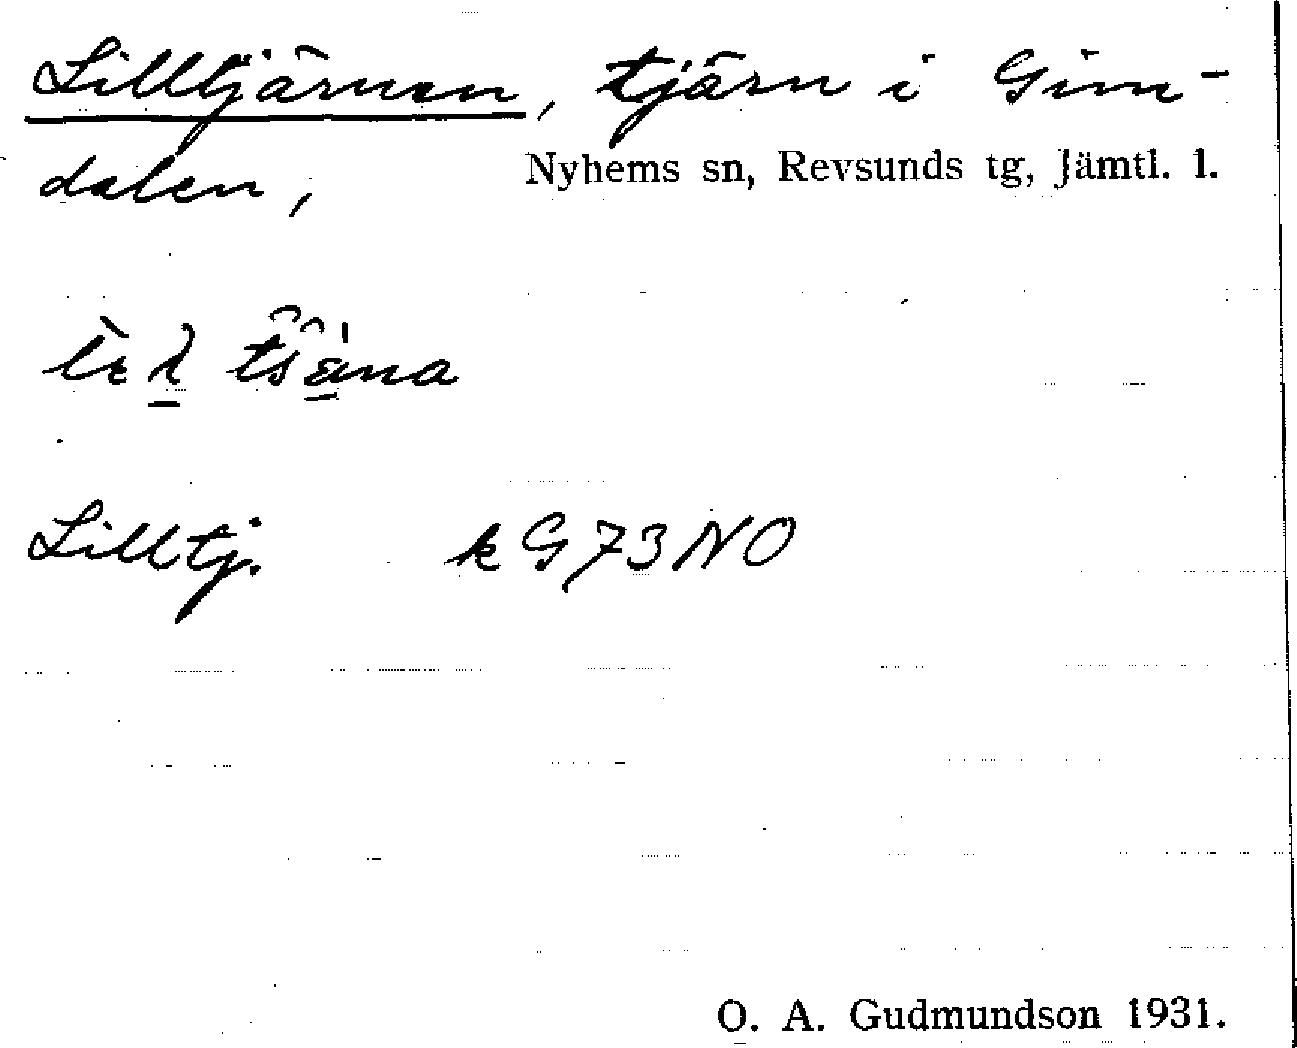 Lilltjärnen, tjärn i Gim-
dalen, Nyhems sn, Revsunds tg, Jämtl. l.
Lilltj. k G73NO
O. A. Gudmundson 1931.